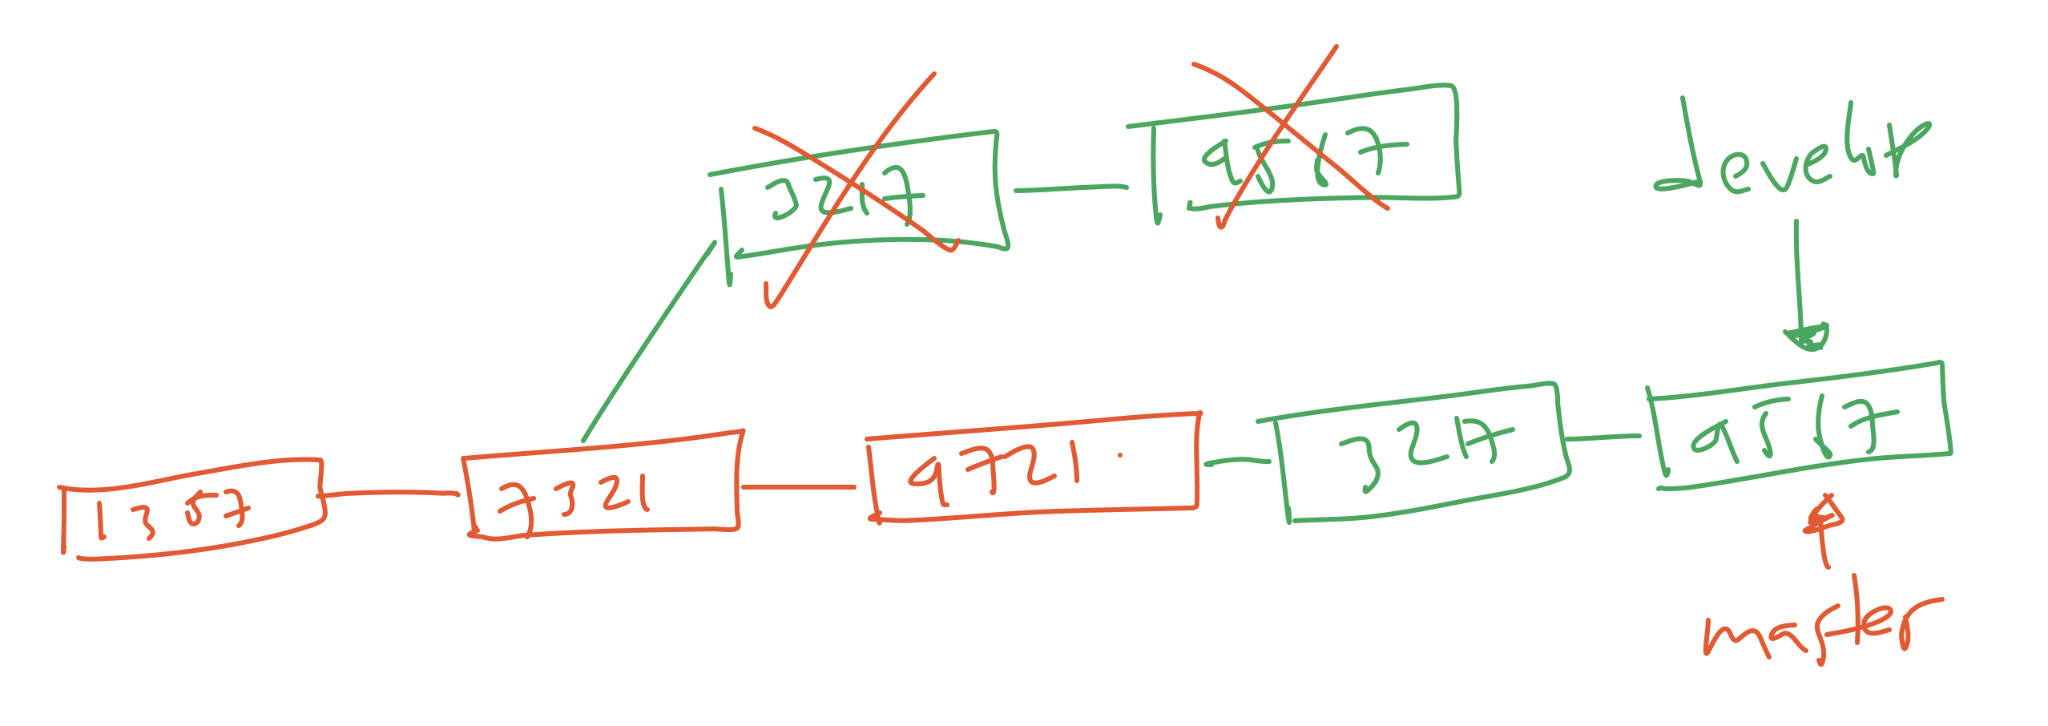 3217
9567
develop
1357
7321
9721
3217
9567
master